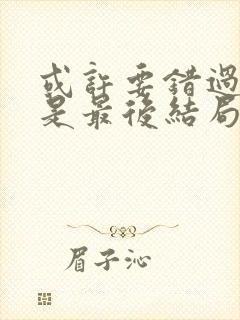 或許要錯過
是最後結局
眉子沁